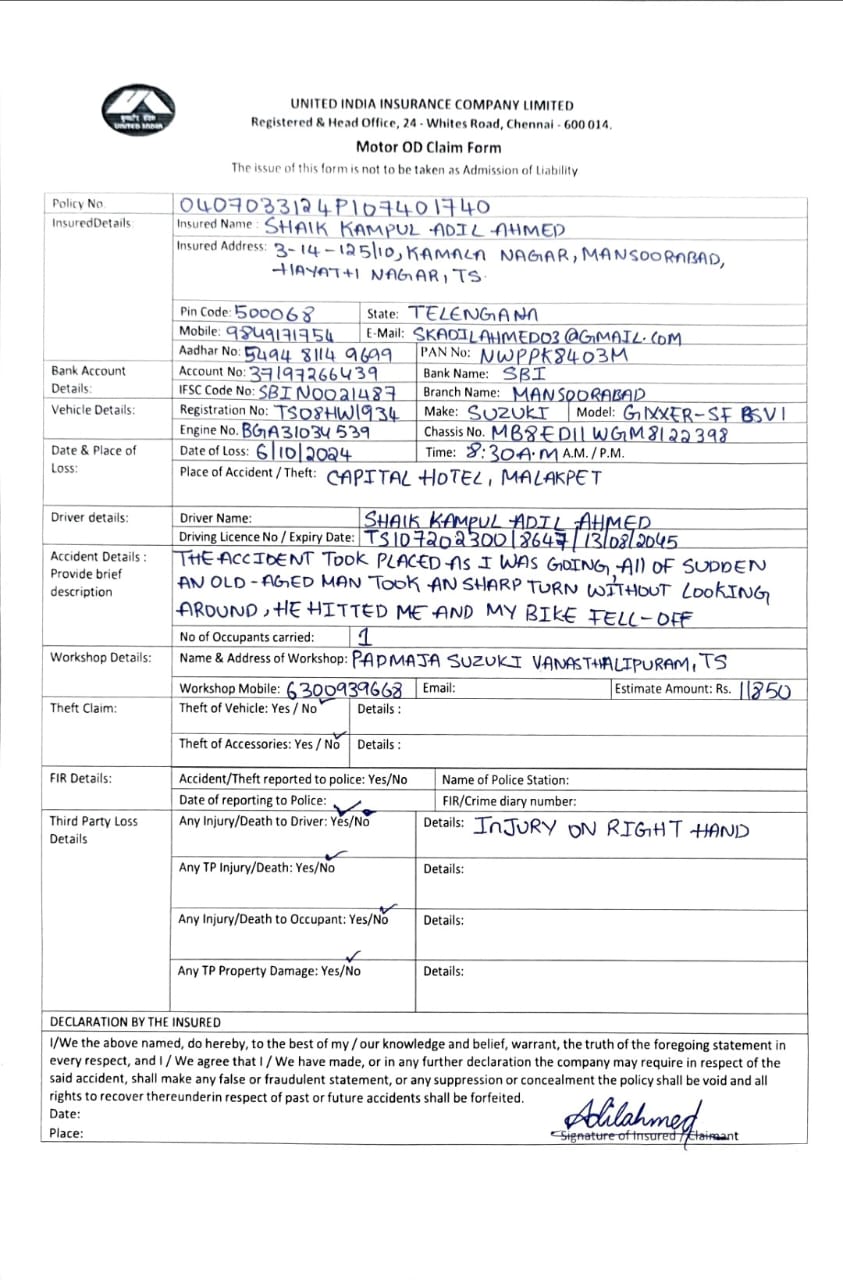 यूनाइटेड इंडिया
UNITED INDIA
UNITED INDIA INSURANCE COMPANY LIMITED
Registered & Head Office, 24 - Whites Road, Chennai - 600 014.
Motor OD Claim Form
The issue of this form is not to be taken as Admission of Liability
Policy No. 0407033124P107401740
InsuredDetails Insured Name : SHAIK KAMPUL ADIL AHMED
Insured Address: 3-14-125/10, KAMALA NAGAR, MANSOORABAD,
HAYATHI NAGAR, TS.
Pin Code: 500068 State: TELENGANA
Mobile: 9849171754 E-Mail: SKADILAHMED03@GMAIL.COM
Aadhar No: 5494 8114 9699 PAN No: NWPPK8403M
Bank Account Details: Account No: 37197266439 Bank Name: SBI
IFSC Code No: SBIN0021487 Branch Name: MANSOORABAD
Vehicle Details: Registration No: TS08HW1934 Make: SUZUKI Model: GIXXER-SF BSVI
Engine No. BGA31034539 Chassis No. MB8ED11WGM8122398
Date & Place of Loss: Date of Loss: 6/10/2024 Time: 8:30A.M A.M. / P.M.
Place of Accident / Theft: CAPITAL HOTEL, MALAKPET
Driver details: Driver Name: SHAIK KAMPUL ADIL AHMED
Driving Licence No / Expiry Date: TS10720230018647/13/08/2045
Accident Details : Provide brief description THE ACCIDENT TOOK PLACED AS I WAS GOING, All OF SUDDEN
AN OLD-AGED MAN TOOK AN SHARP TURN WITHOUT LOOKING
AROUND, HE HITTED ME AND MY BIKE FELL-OFF
No of Occupants carried: 1
Workshop Details: Name & Address of Workshop: PADMAJA SUZUKI VANASTHALIPURAM, TS
Workshop Mobile: 6300939668 Email: Estimate Amount: Rs. 11850
Theft Claim: Theft of Vehicle: Yes / No Details :
Theft of Accessories: Yes / No Details :
FIR Details: Accident/Theft reported to police: Yes/No Name of Police Station:
Date of reporting to Police: FIR/Crime diary number:
Third Party Loss Details Any Injury/Death to Driver: Yes/No Details: INJURY ON RIGHT HAND
Any TP Injury/Death: Yes/No Details:
Any Injury/Death to Occupant: Yes/No Details:
Any TP Property Damage: Yes/No Details:
DECLARATION BY THE INSURED
I/We the above named, do hereby, to the best of my / our knowledge and belief, warrant, the truth of the foregoing statement in
every respect, and I / We agree that I / We have made, or in any further declaration the company may require in respect of the
said accident, shall make any false or fraudulent statement, or any suppression or concealment the policy shall be void and all
rights to recover thereunderin respect of past or future accidents shall be forfeited.
Date:
Adilahmed
Place: Signature of Insured / Claimant